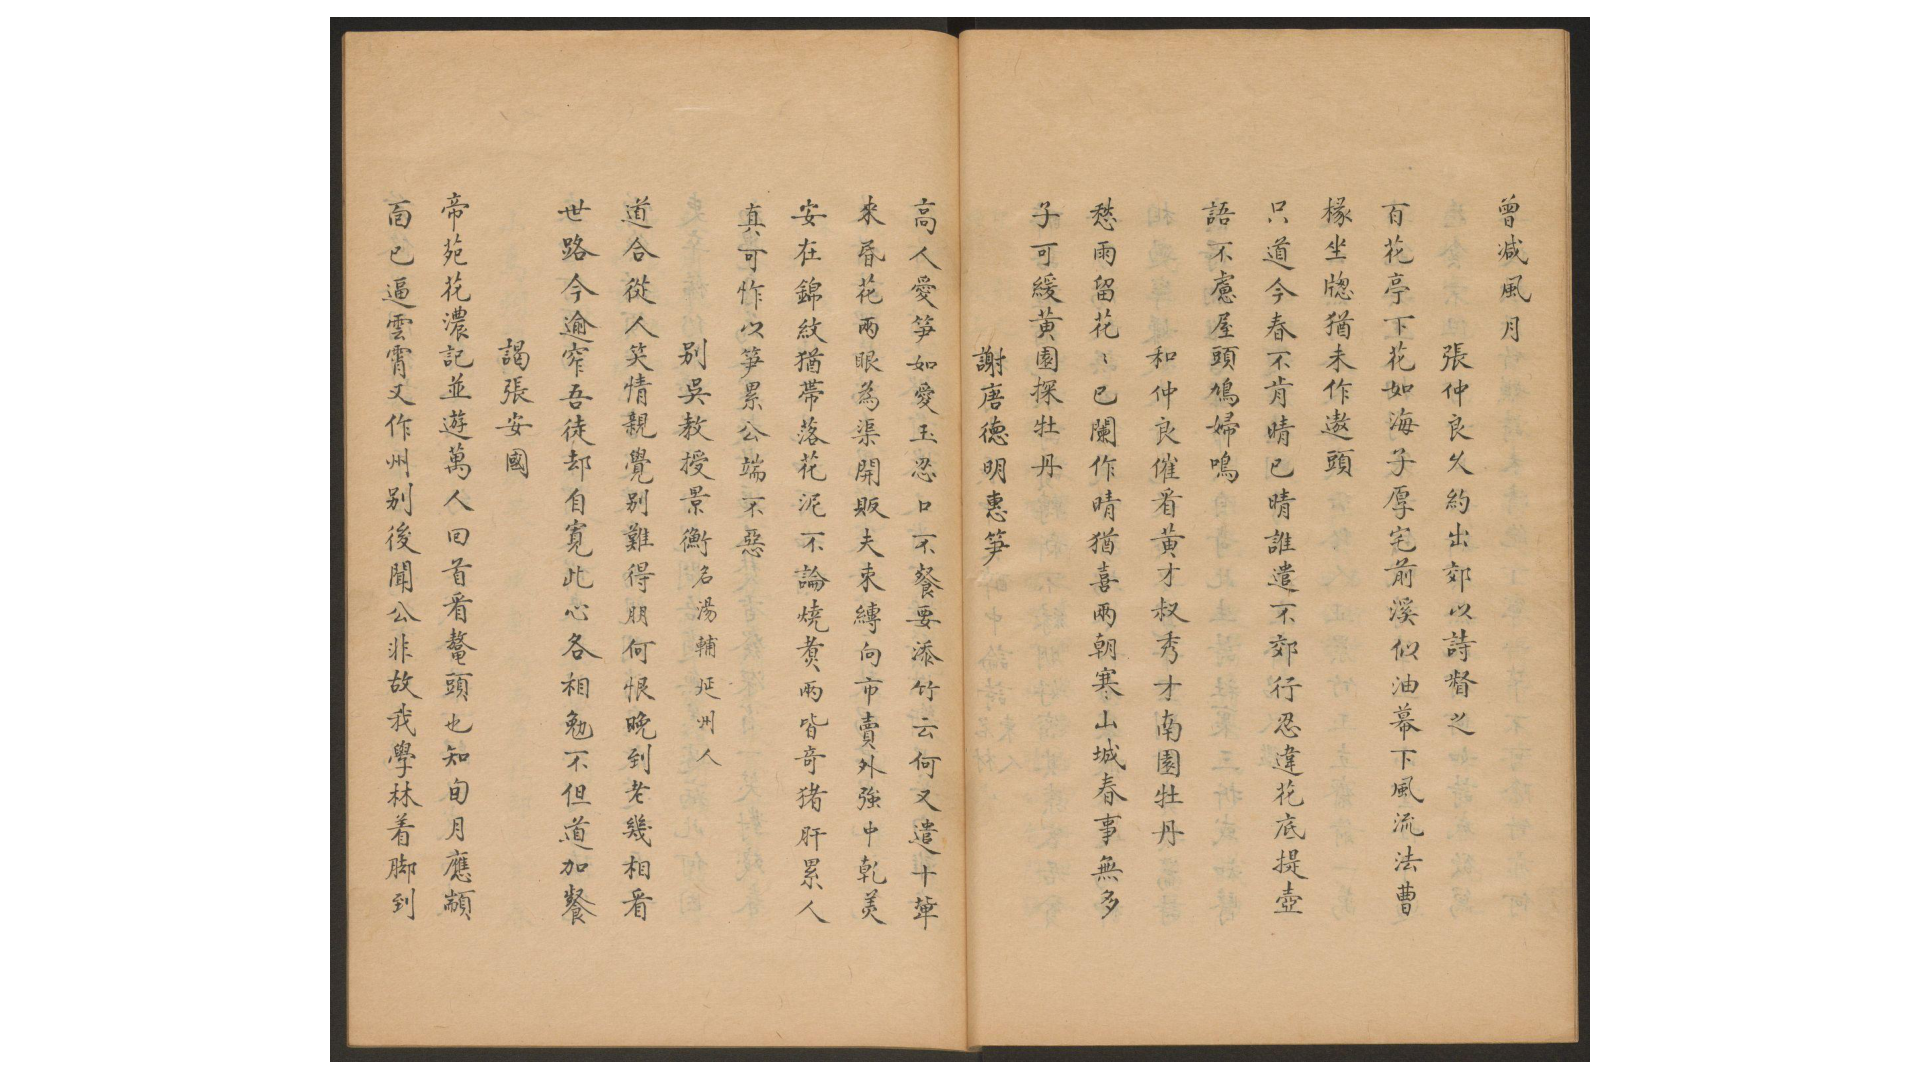 曾减風月
張仲良久約出郊以詩督之
百花亭下花如海子厚宅前溪似油幕下風流法曹
椽坐牎猶未作遨頭
只道今春不肯晴已晴誰遣不郊行忍違花底提壺
語不慮屋頭鳩婦鳴
和仲良催看黄才叔秀才南園牡丹
愁雨留花〻已闌作晴猶喜兩朝寒山城春事無多
子可緩黄園探牡丹
謝唐德明惠笋
高人愛笋如愛玉忍口不餐要添竹云何又遣十輩
來昏花兩眼為渠開販夫束縛向市賣外強中乾美
安在錦紋猶帶落花泥不論燒煑兩皆奇猪肝累人
真可怍以笋累公端不惡
别吳教授景衡名湯輔延州人
道合從人笑情親覺别難得朋何恨晚到老幾相看
世路今逾窄吾徒却自寛此心各相勉不但道加餐
謁張安國
帝苑花濃記並遊萬人回首看鼇頭也知旬月應顓
面已逼雲霄又作州别後聞公非故我學林着脚到